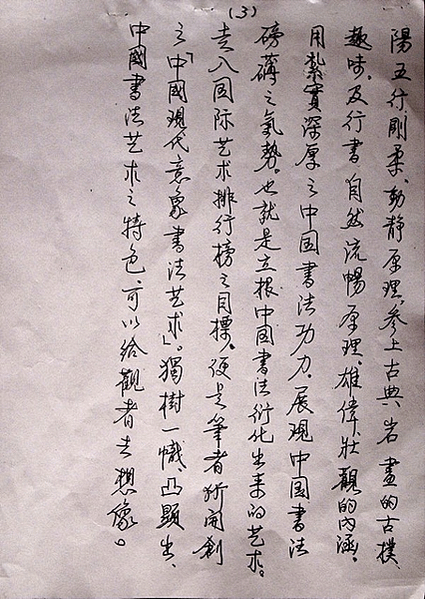 (3)
陽五行剛柔、動靜原理、參上古典岩畫的古樸、
趣味。及行書自然流暢原理、雄偉、壯觀的內涵。
用紮實深厚之中国書法功力、展現中国書法
磅礴之氣勢。也就是立根中国書法衍化出来的艺术。
走入国际艺术排行榜之目標、便是筆者所開創
之「中國現代意象書法艺术」。獨樹一幟、凸顯出、
中國書法艺术之特色、可以給觀者去想像。